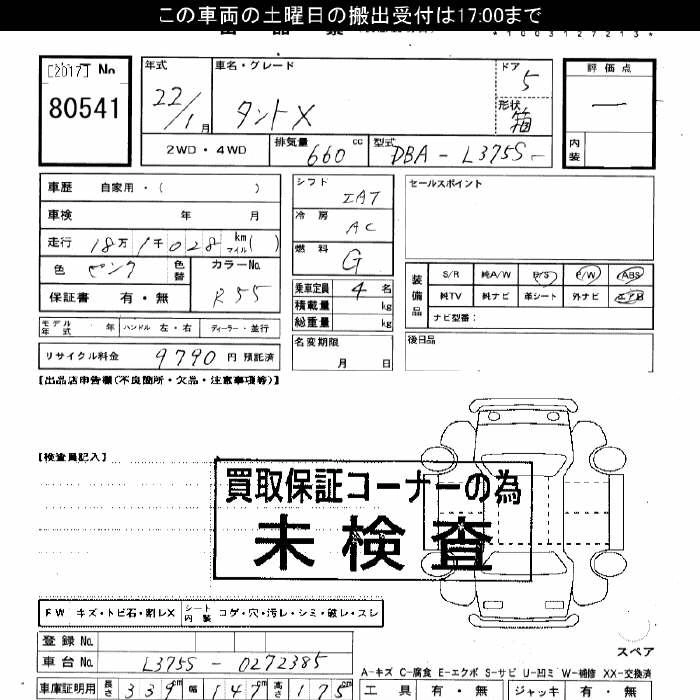 この車両の土曜日の搬出受付は17:00まで
*1003127213*
[2017] No
80541
年式 22/1月
車名・グレード タントX
ドア 5
形状 箱
評価点 —
内装
2WD・4WD
排気量 660 cc
型式 DBA-L375S-
車歴 自家用・( )
車検 年 月
走行 18万1千028 km マイル( )
色 ピンク 色替
カラーNo. R55
保証書 有・無
シフト IAT
冷房 AC
燃料 G
乗車定員 4 名
積載量 kg
総重量 kg
セールスポイント
装備品
S/R 純A/W P/S P/W ABS
純TV 純ナビ 革シート 外ナビ エアB
ナビ型番:
モデル年式 年 ハンドル 左・右 ディーラー・並行
リサイクル料金 9790 円 預託済
名変期限 月 日
後日品
【出品店申告欄(不良箇所・欠品・注意事項等)】
【検査員記入】
買取保証コーナーの為
未検査
FW キズ・トビ石・割レX シート内装 コゲ・穴・汚レ・シミ・破レ・スレ
登録 No.
車台 No. L375S-0272385
スペア
車庫証明用 長さ 339cm 幅 147cm 高さ 175cm
A-キズ C-腐食 E-エクボ S-サビ U-凹ミ W-補修 XX-交換済
工具 有・無 ジャッキ 有・無